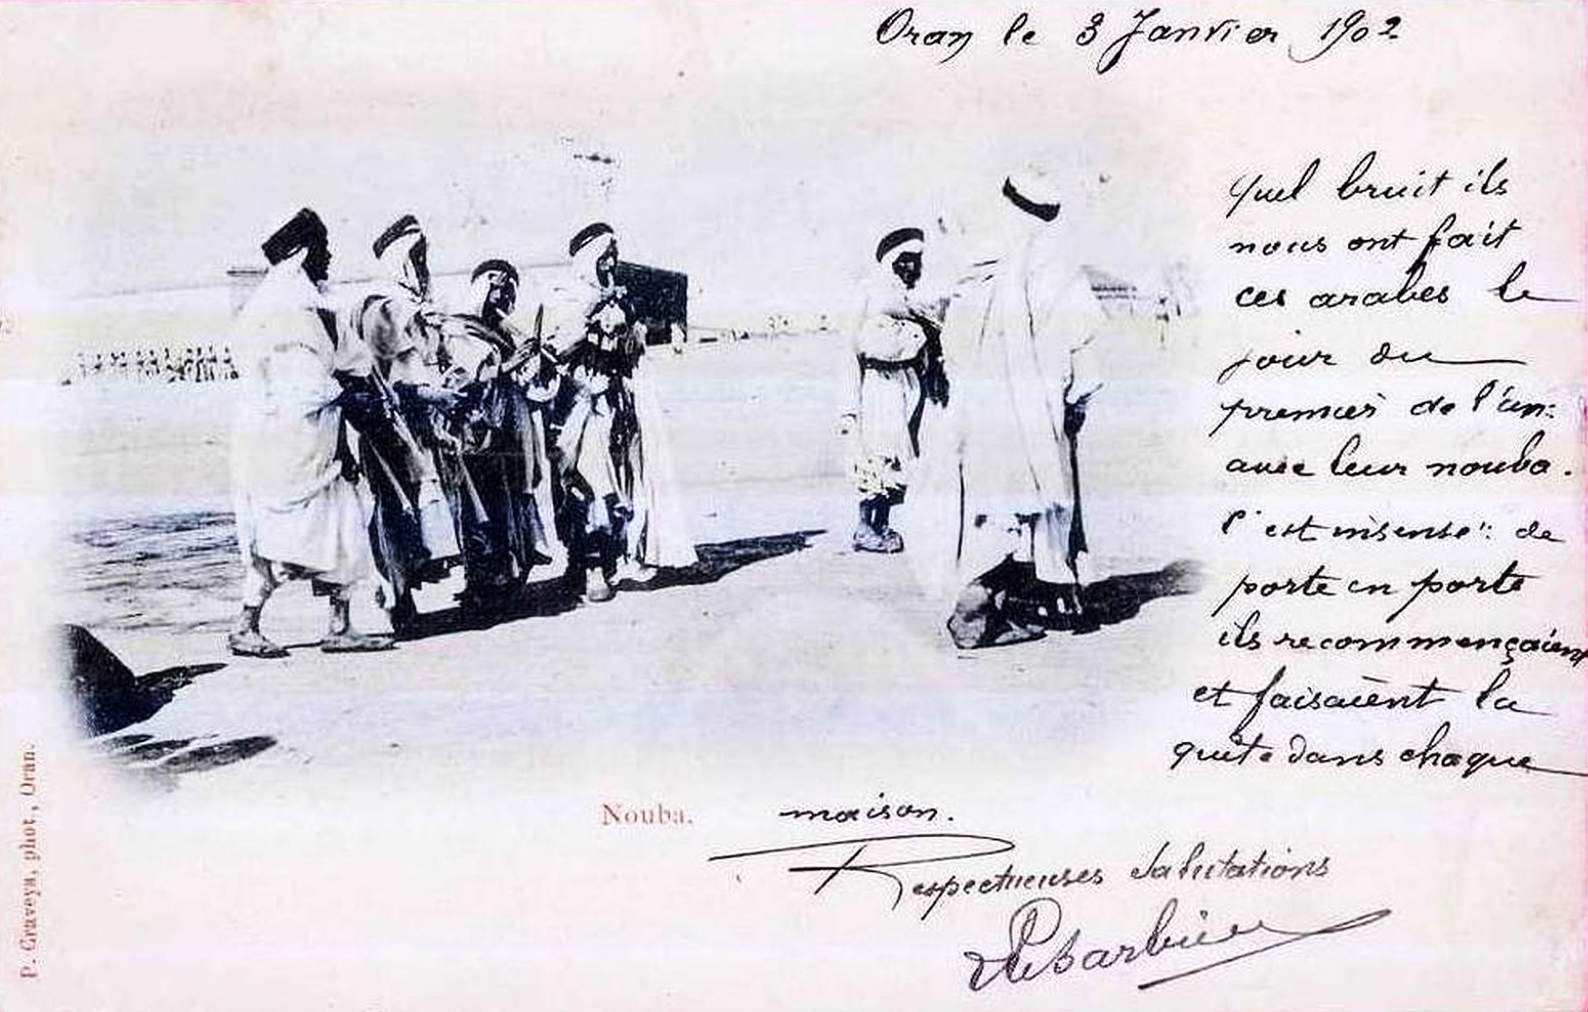 Oran le 3 Janvier 1902
quel bruit ils
nous ont fait
ces arabes le
jour du
premier de l'an
avec leur nouba.
c'est insensé: de
porte en porte
ils recommençaient
et faisaient la
quête dans chaque
maison.
Respectueuses Salutations
Nouba.
P. Graveya, phot., Oran.